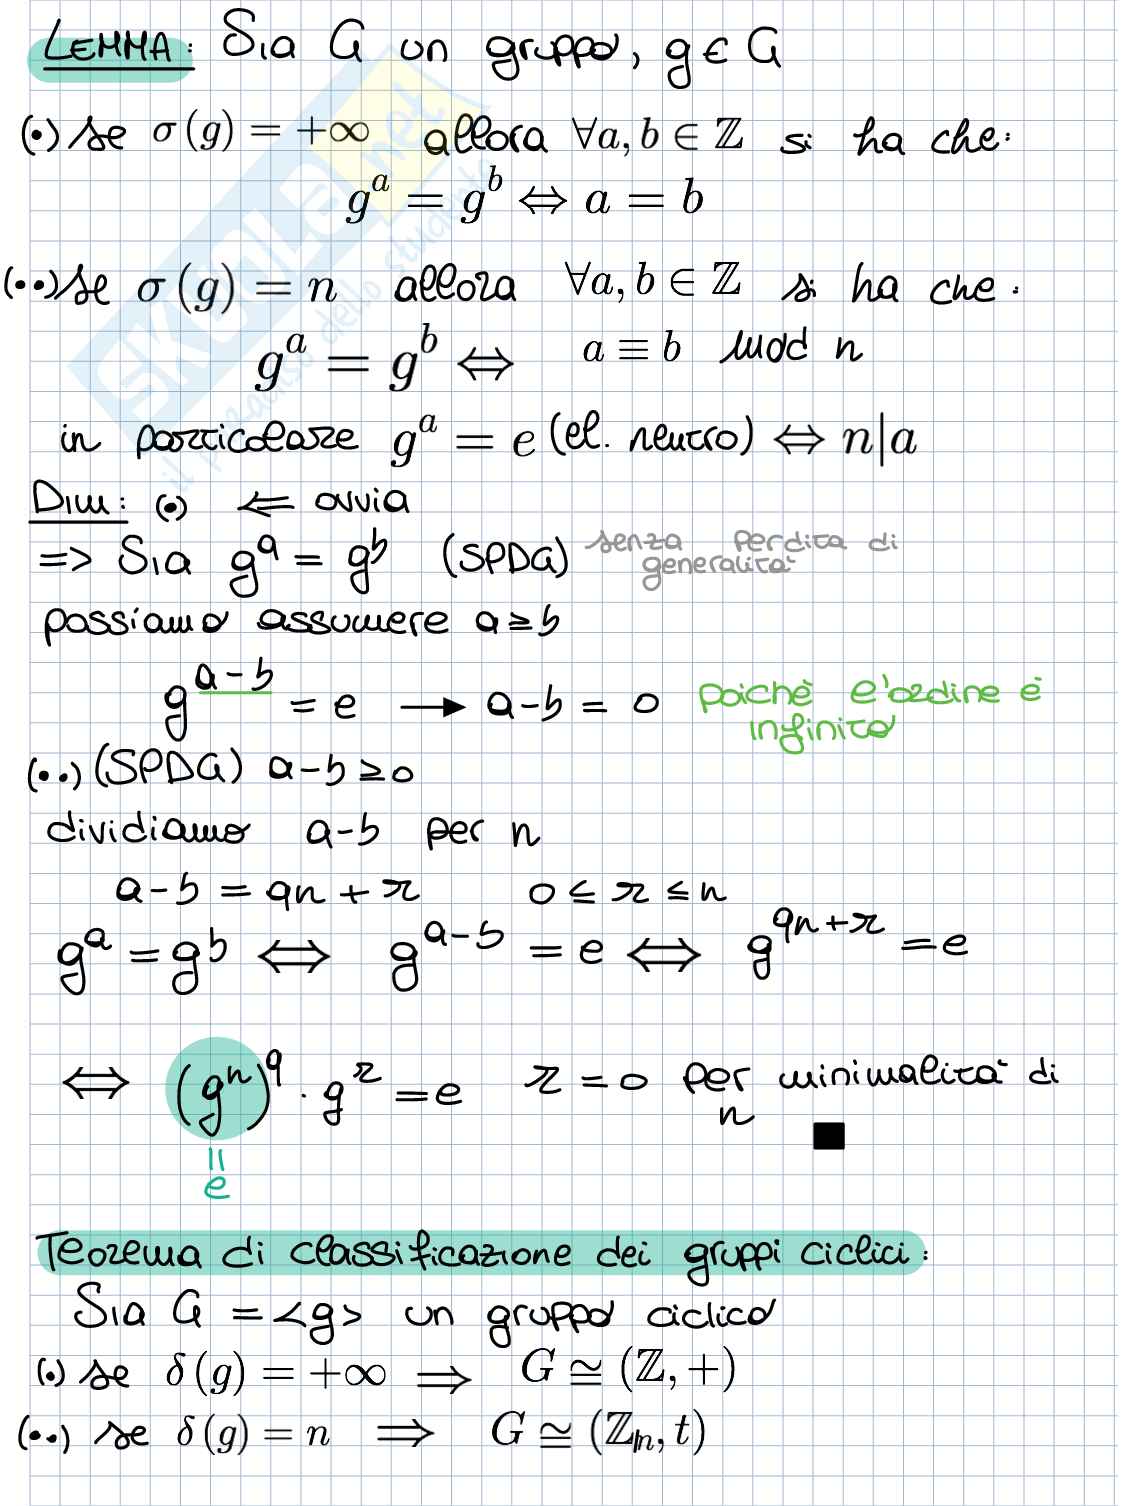 LEMMA: Sia G un gruppo, g ∈ G
(•) se σ(g) = +∞ allora ∀a, b ∈ ℤ si ha che:
g^a = g^b ⇔ a = b
(••) se σ(g) = n allora ∀a, b ∈ ℤ si ha che:
g^a = g^b ⇔ a ≡ b mod n
in particolare g^a = e (el. neutro) ⇔ n|a
Dim: (•) ⇐ ovvia
=> Sia g^a = g^b (SPDG) senza perdita di
generalità
possiamo assumere a ≥ b
g^{a-b} = e → a-b = 0 poichè l'ordine è
infinito
(••) (SPDG) a-b ≥ 0
dividiamo a-b per n
a-b = qn + r 0 ≤ r ≤ n
g^a = g^b ⇔ g^{a-b} = e ⇔ g^{qn+r} = e
⇔ (g^n)^q · g^r = e r = 0 per minimalità di
n ■
=
e
Teorema di classificazione dei gruppi ciclici:
Sia G = <g> un gruppo ciclico
(•) se δ(g) = +∞ ⇒ G ≅ (ℤ, +)
(••) se δ(g) = n ⇒ G ≅ (ℤ/n, t)
SKUOLA.net
il paradiso dello studente